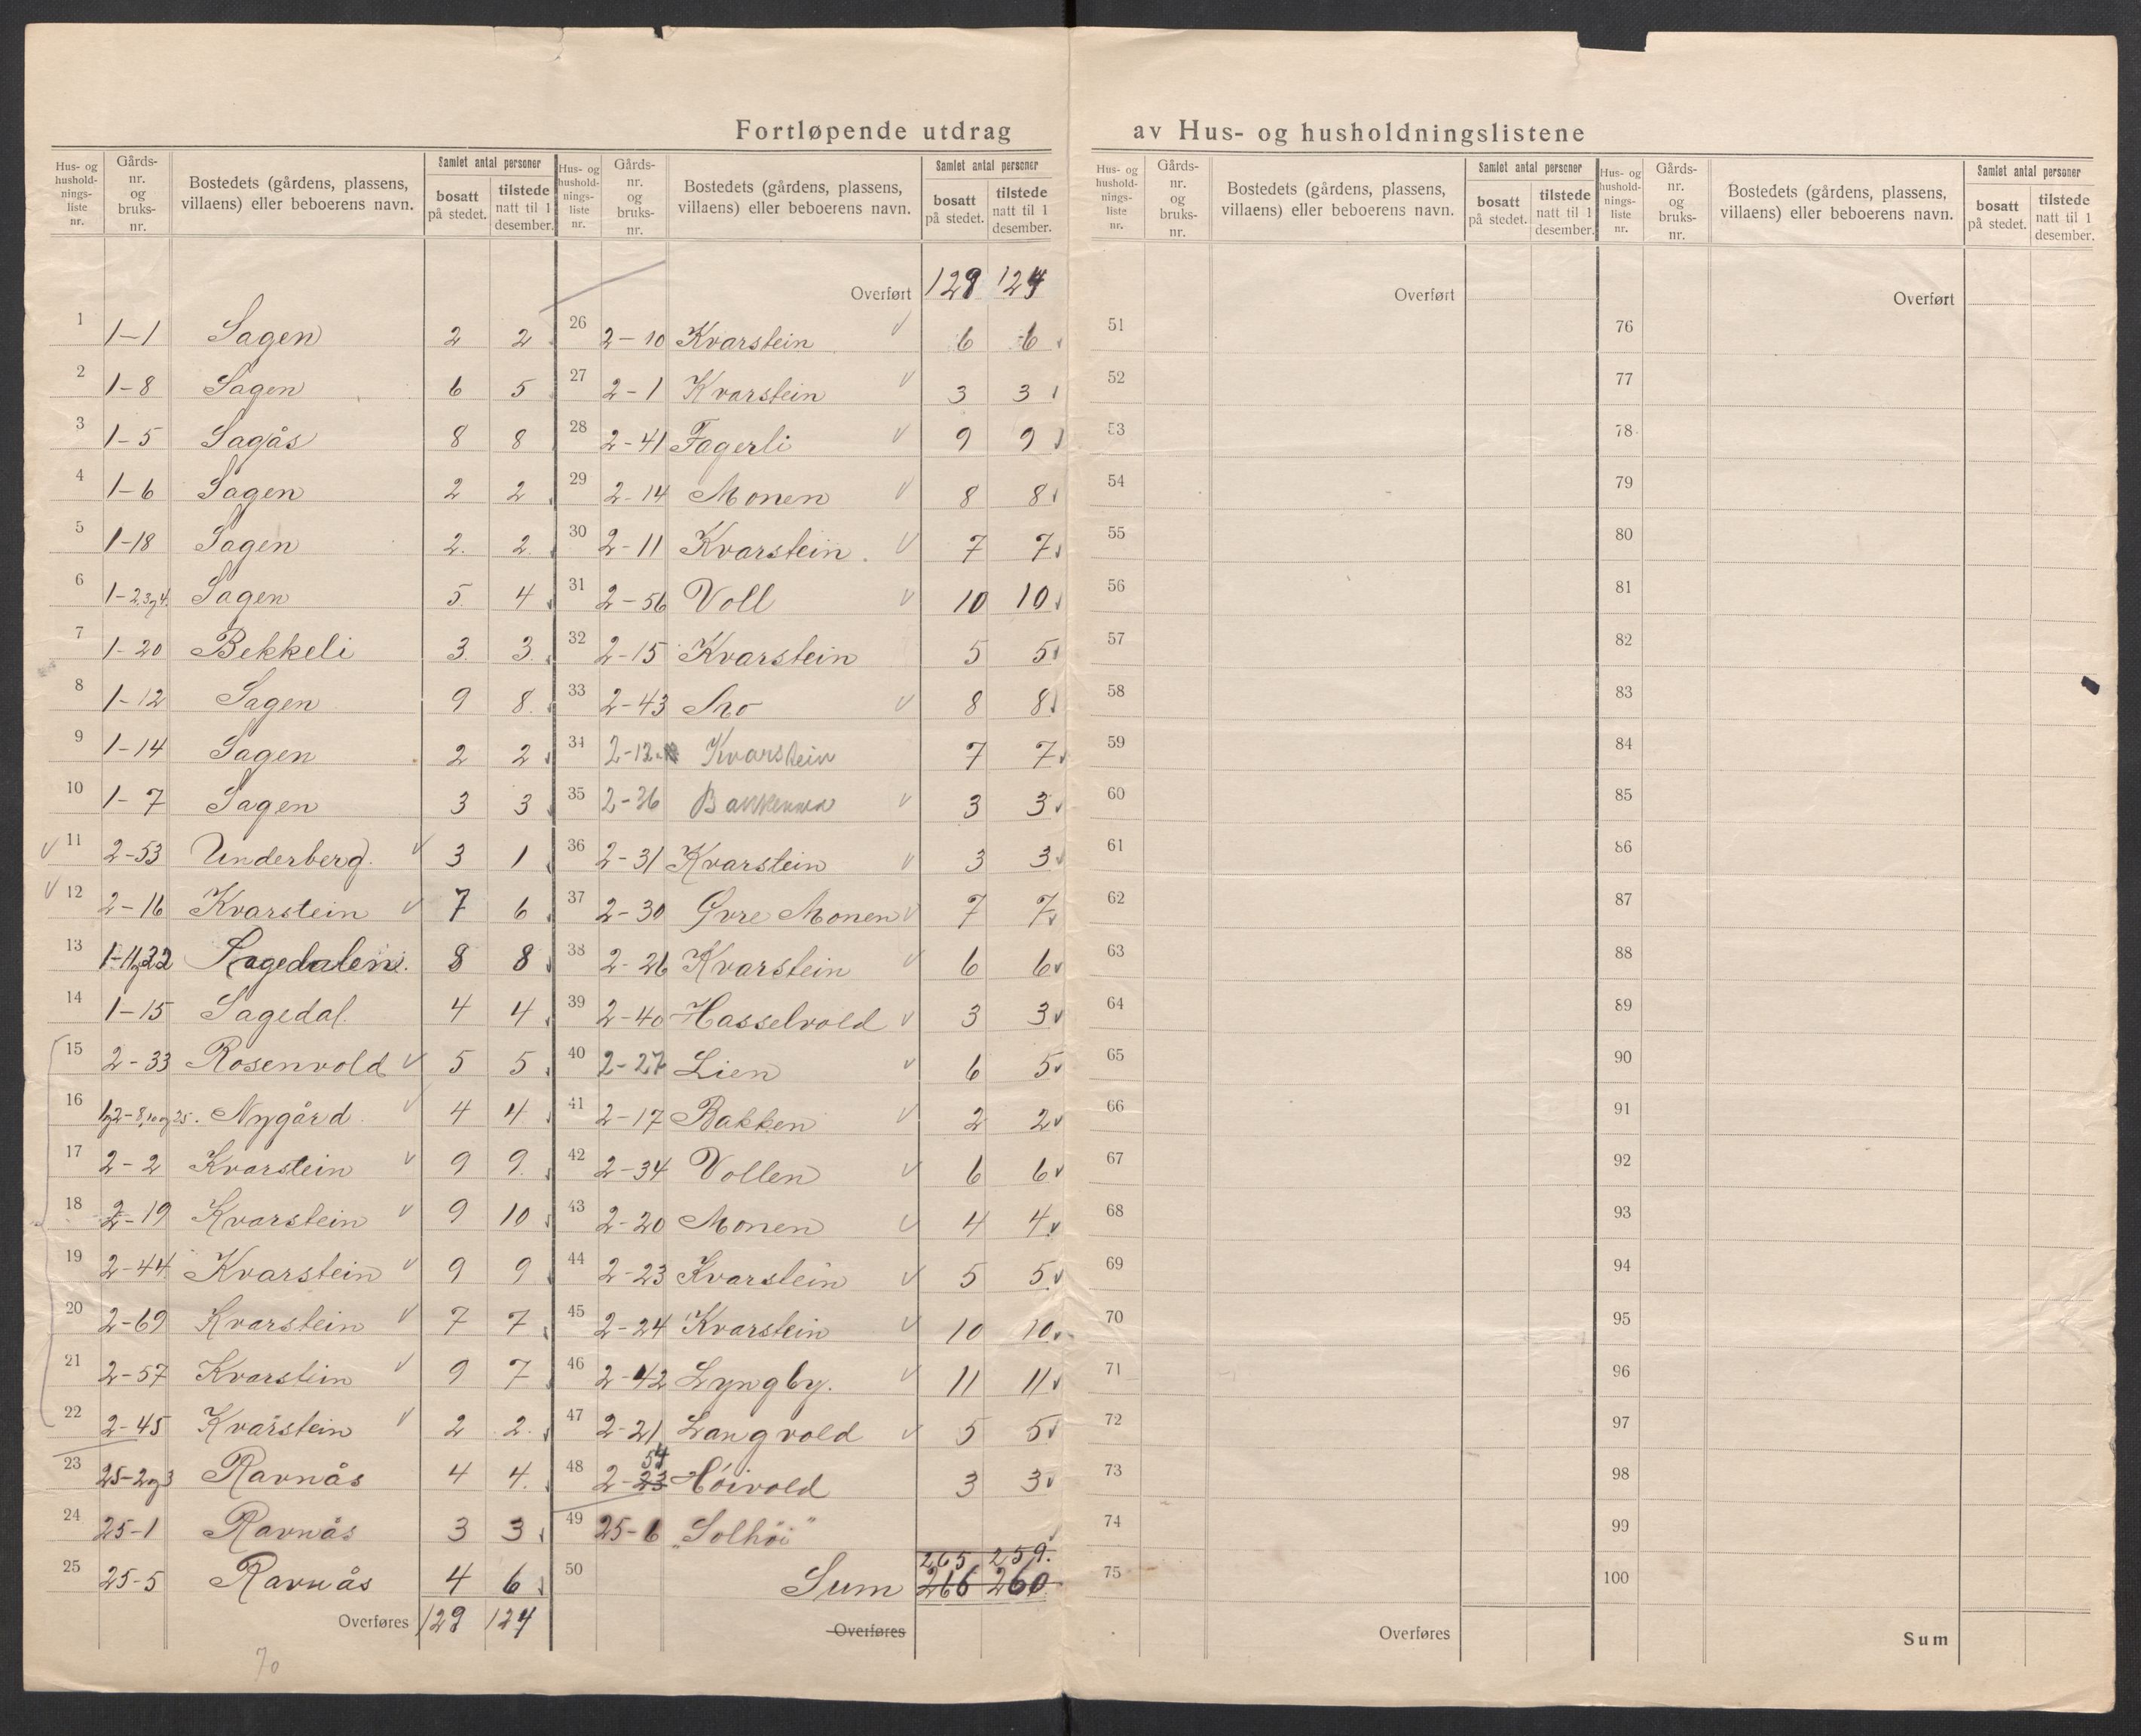 Fortløpende utdrag av Hus- og husholdningslistene
Hus- og husholdningsliste nr. | Gårds- nr. og bruks- nr. | Bostedets (gårdens, plassens, villaens) eller beboerens navn. | Samlet antal personer | bosatt på stedet. | tilstede natt til 1 desember.
1 1-1 Sagen 2 2
2 1-8 Sagen 6 5
3 1-5 Sagås 8 8
4 1-6 Sagen 2 2
5 1-18 Sagen 2. 2
6 1-2,3og4. Sagen 5. 4
7 1-20 Bekkeli 3. 3.
8 1-12 Sagen 9 8.
9 1-14 Sagen 2 2
10 1-7 Sagen 3 3
11 2-53 Underberg. 3 1
12 2-16 Kvarstein 7 6
13 1-11og22 Sagedalen. 8 8
14 1-15 Sagedal. 4 4
15 2-33 Rosenvold 5 5
16 1og2-8,10og25. Nygård 4 4
17 2-2 Kvarstein 9 9.
18 2-19 Kvarstein 9 10
19 2-44 Kvarstein 9 9
20 2-69 Kvarstein 7 7
21 2-57 Kvarstein 9 7
22 2-45 Kvarstein 2 2.
23 25-2og3 Ravnås 4 4.
24 25-1 Ravnås 3 3
25 25-5 Ravnås 4 6
Overføres 129 124
70
Hus- og husholdningsliste nr. | Gårds- nr. og bruks- nr. | Bostedets (gårdens, plassens, villaens) eller beboerens navn. | Samlet antal personer | bosatt på stedet. | tilstede natt til 1 desember.
Overført 129 124
26 2-10 Kvarstein 6 6
27 2-1 Kvarstein 3 3
28 2-41 Fagerli 9 9
29 2-14 Monen 8 8
30 2-11 Kvarstein. 7 7
31 2-56 Voll 10 10
32 2-15 Kvarstein 5 5
33 2-43 Mo 8 8
34 2-12 Kvarstein 7 7
35 2-36 3 3
36 2-31 Kvarstein 3 3
37 2-30 Øvre Monen 7 7
38 2-26 Kvarstein 6 6
39 2-40 Hasselvold 3 3
40 2-27 Lien 6 5
41 2-17 Bakken 2 2
42 2-34 Vollen 6 6
43 2-20 Monen 4 4
44 2-23 Kvarstein 5 5
45 2-24 Kvarstein 10 10
46 2-42 Lyngby. 11 11
47 2-21 Langvold 5 5
54
48 2-23 Höivold 3 3
49 25-6 „Solhöi"
265 259.
50 Sum 266 260
Overføres
Hus- og husholdningsliste nr. | Gårds- nr. og bruks- nr. | Bostedets (gårdens, plassens, villaens) eller beboerens navn. | Samlet antal personer | bosatt på stedet. | tilstede natt til 1 desember.
Overført
51
52
53
54
55
56
57
58
59
60
61
62
63
64
65
66
67
68
69
70
71
72
73
74
75
Overføres
Hus- og husholdningsliste nr. | Gårds- nr. og bruks- nr. | Bostedets (gårdens, plassens, villaens) eller beboerens navn. | Samlet antal personer | bosatt på stedet. | tilstede natt til 1 desember.
Overført
76
77
78
79
80
81
82
83
84
85
86
87
88
89
90
91
92
93
94
95
96
97
98
99
100
Sum